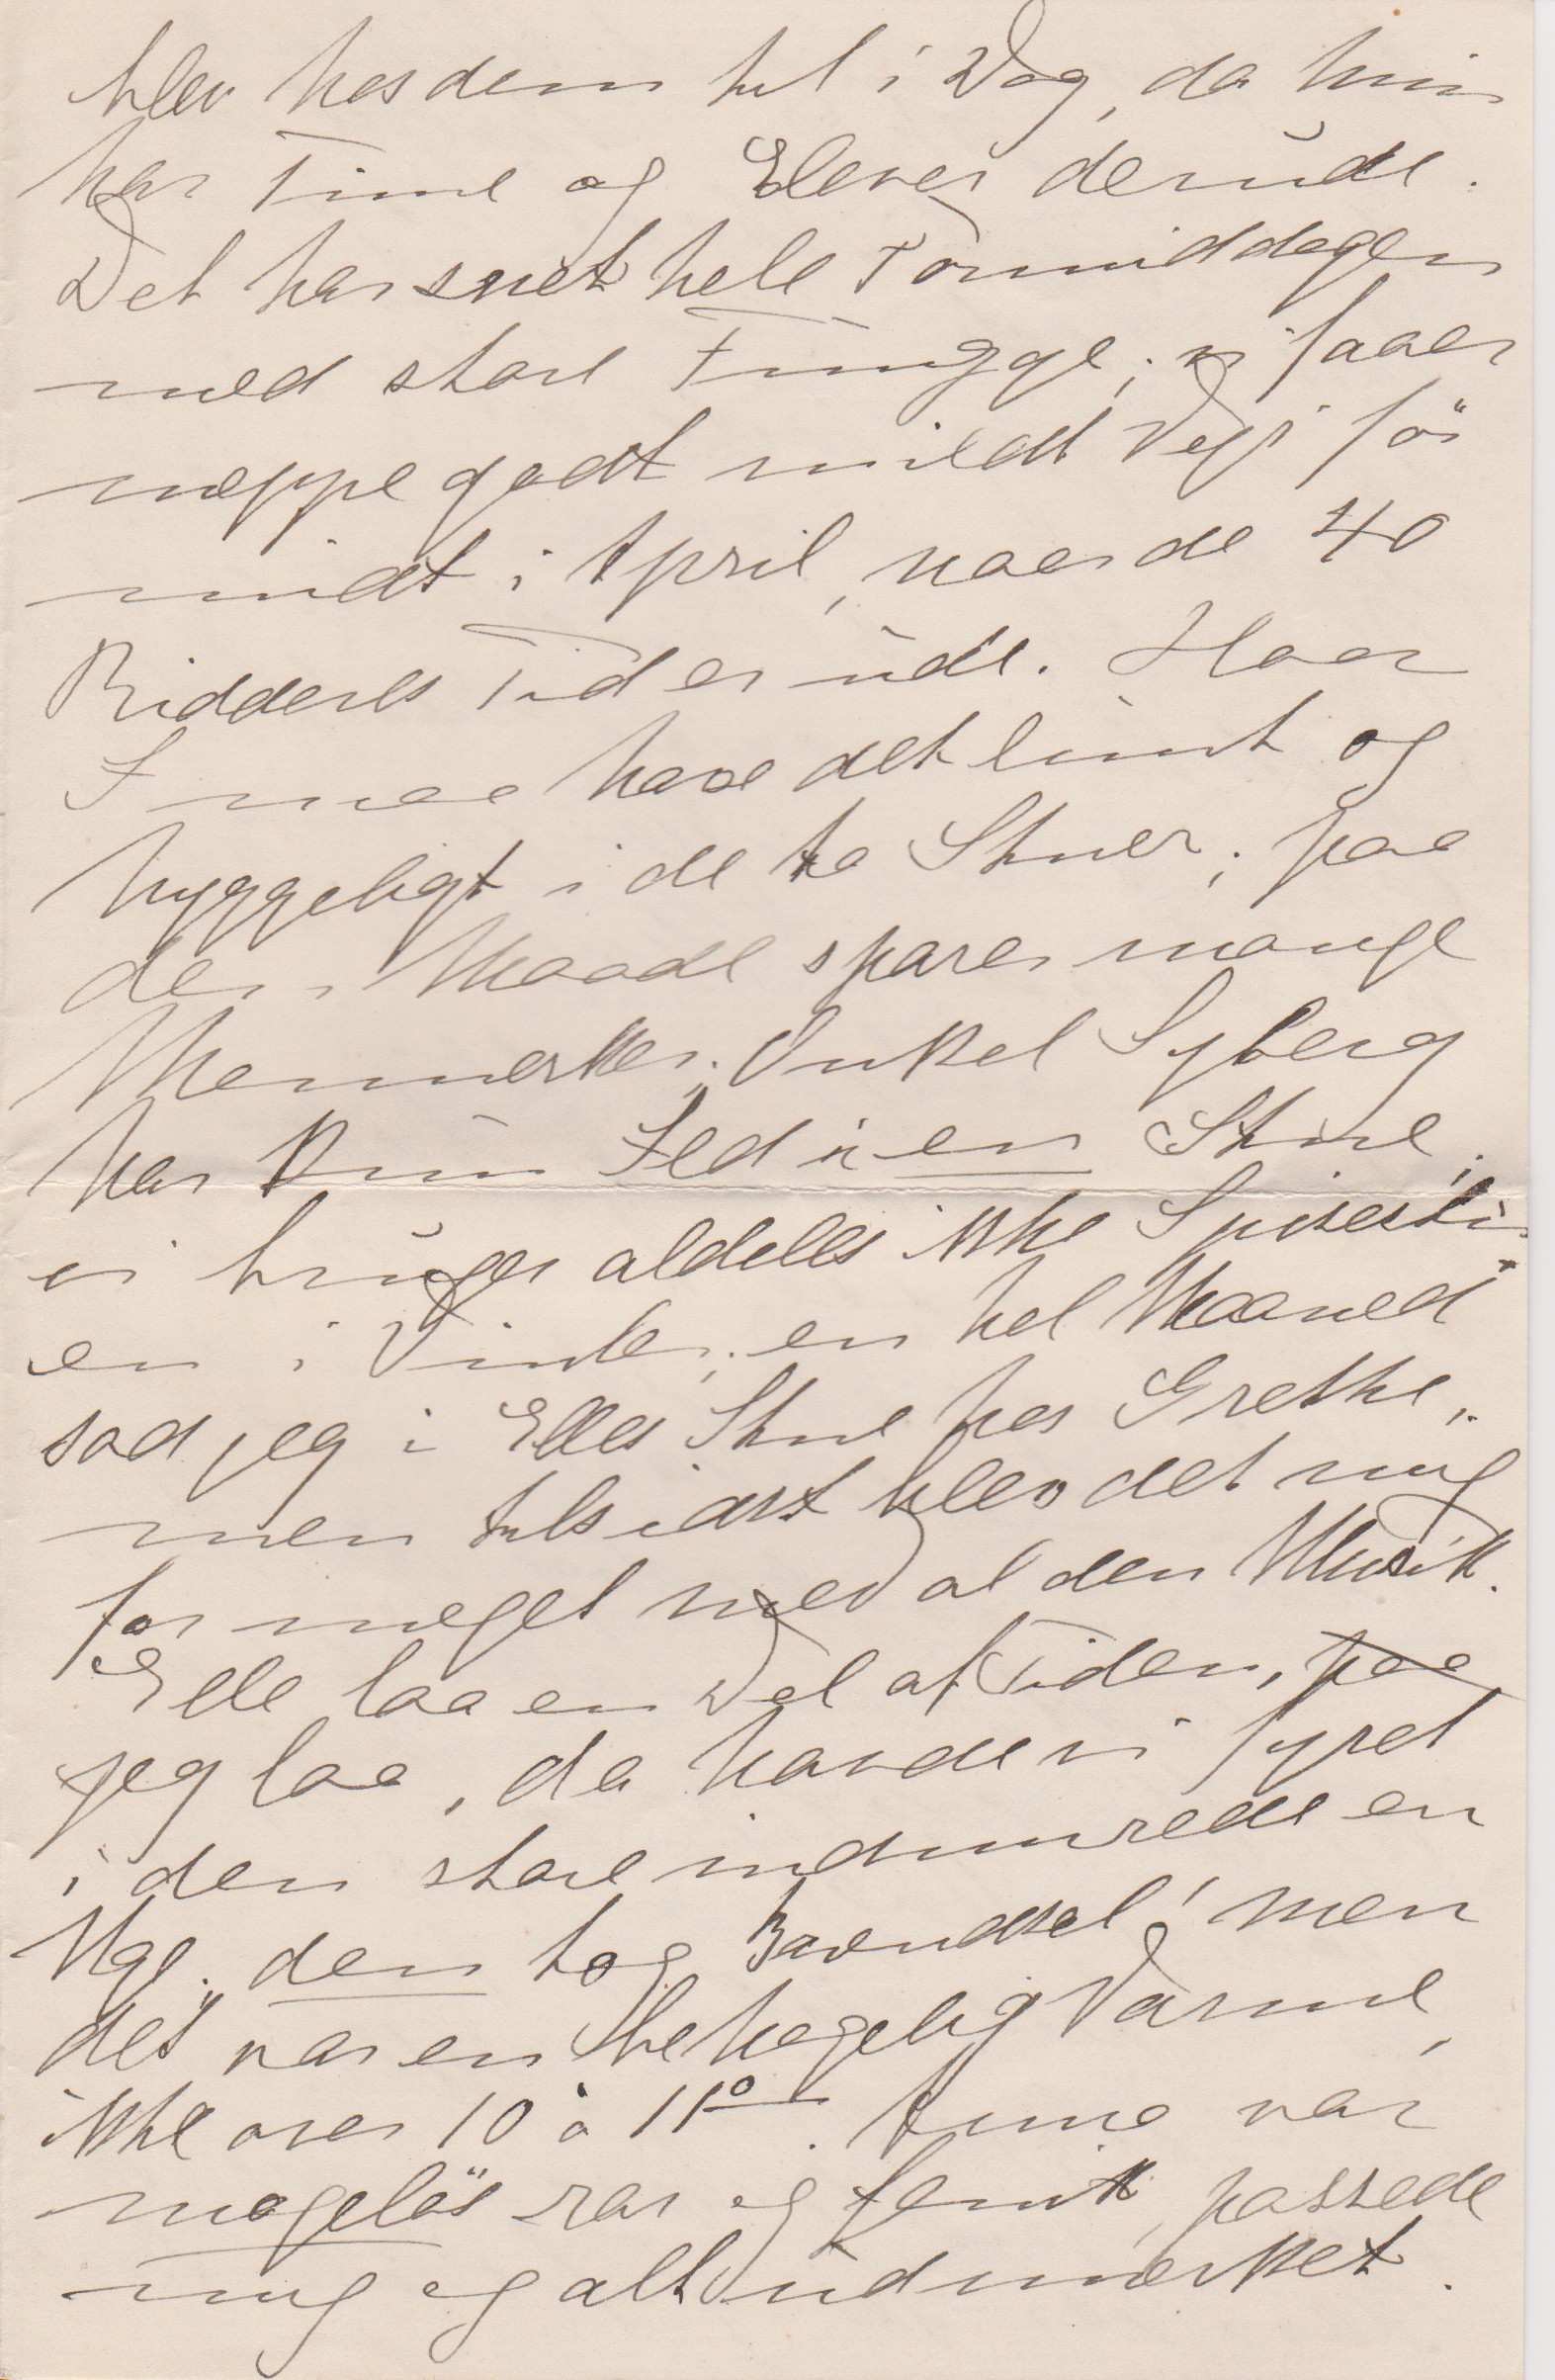 blev hos dem til i Dag, da hun
har Time og Elever derude.
Det har sneet hele Formiddagen
med store Fnugge; vi faaer
neppe godt mildt Vejr för
midt i April, naar de 40
Ridderes Tid er ude. Hvor
I maa have det lunt og
hyggeligt i de to Stuer; paa
den Maade sparer mange
Mennesker. Onkel Syberg
har kun Ild i en Stue;
vi bruger aldeles ikke Spisestu-
en i Vinter; en hel Maaned
sad jeg i Elles Stue hos Grethe,
men tilsidst blev det mig
for meget med al den Musik.
Elle laa en Del af Tiden, paa
jeg laa, da havde vi fyret
i den store indmurede en
Uge; den tog Brændsel! men
det var en behagelig Varme,
ikke over 10 à 11°. Anna var
mageløs rar og flink, passede
mig og alt udmærket.